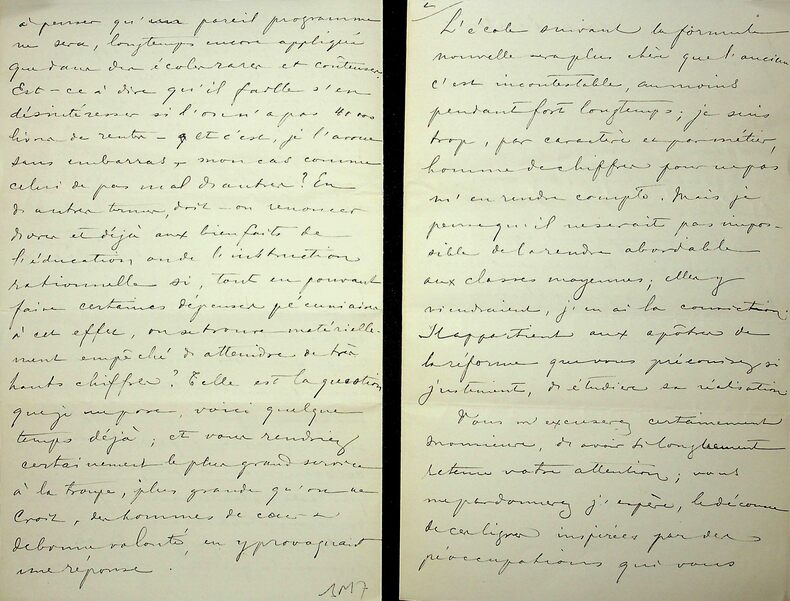 à penser qu'un pareil programme
ne sera, longtemps encore appliqué
que dans des écoles rares et coûteuses
Est-ce à dire qu'il faille s'en
désintéresser si l'on n'a pas 40 000
livres de rente - et c'est, je l'avoue
sans embarras, mon cas comme
celui de pas mal d'autres? En
d'autres termes, doit-on renoncer
d'ores et déjà aux bienfaits de
l'éducation ou de l'instruction
rationnelle si, tout en pouvant
faire certaines dépenses pécuniaires
à cet effet, on se trouve matérielle-
ment empêché d'atteindre de très
hauts chiffres? Telle est la question
que je me pose, voici quelque
temps déjà; et vous rendriez
certainement le plus grand service
à la troupe, plus grande qu'on ne
croit, des hommes de cœur et
de bonne volonté, en y provoquant
une réponse.
1M7
2/
L'école suivant la formule
nouvelle sera plus chère que l'ancienne
c'est incontestable, au moins
pendant fort longtemps; je suis
trop, par caractère et par métier,
homme de chiffres pour ne pas
m'en rendre compte. Mais je
pense qu'il ne serait pas impos-
sible de la rendre abordable
aux classes moyennes; elles y
viendraient, j'en ai la conviction.
Il appartient aux apôtres de
la réforme que vous préconisez si
justement, d'étudier sa réalisation
Vous m'excuserez certainement
Monsieur, d'avoir si longuement
retenu votre attention; vous
me pardonnerez j'espère, le décousu
de ces lignes inspirées par des
préoccupations qui vous